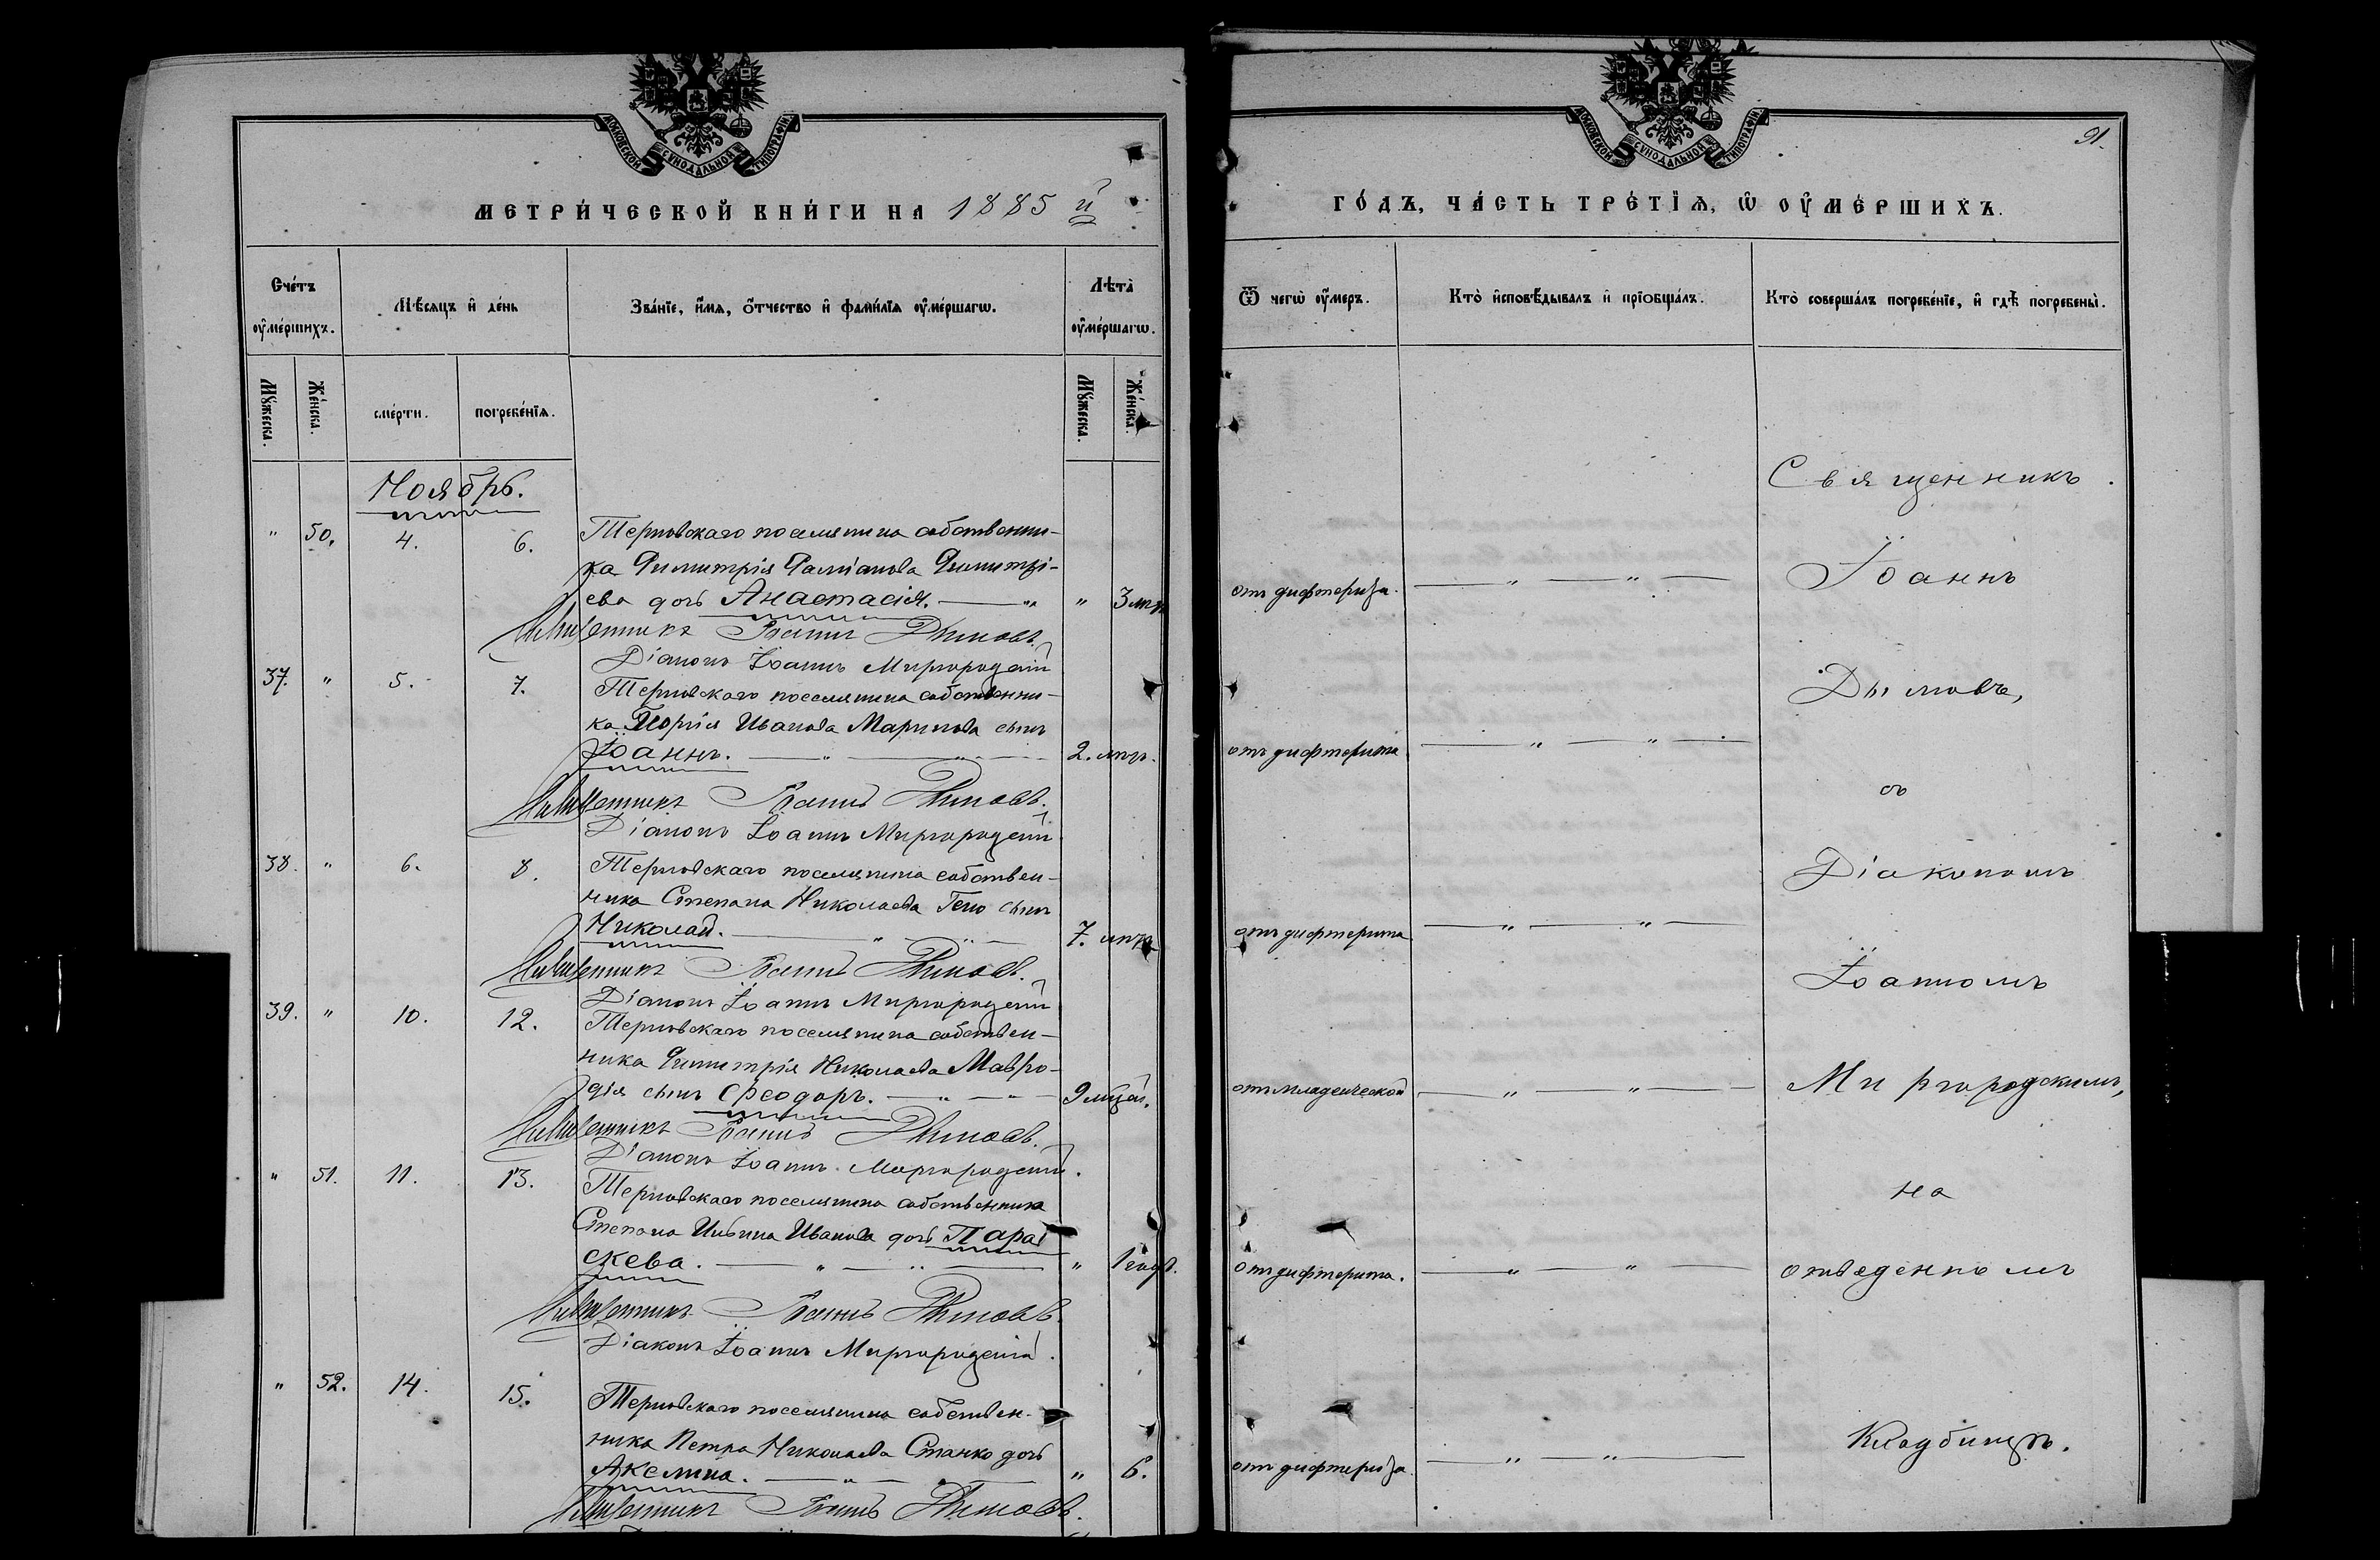 МОСКОВСКОЙ СУНОДАЛЬНОЙ ТИПОГРАФІИ
МЕТРИ́ЧЕСКОЙ КНИ́ГИ НА 1885 й
Сче́тъ ᲂу҆ме́ршихъ.
Мѣ́сяцъ и҆ де́нь
Зва́нїе, и҆́мѧ, ѻ҆́тчество и҆ фами́лїѧ ᲂу҆ме́ршагѡ.
Лѣта̀ ᲂу҆ме́ршагѡ.
Мꙋ́жеска.
Же́нска.
сме́рти.
погребе́нїѧ.
Мꙋ́жеска.
Же́нска.
Ноябрь.
" 50. 4. 6. Терновскаго поселянина собственни-
ка Димитрія Даміанова Димитрі-
ева дочь Анастасія. " 3 мѣс
Священникъ Іоаннъ Дымовъ.
Діаконъ Іоаннъ Миргородскій
37. " 5. 7. Терновскаго поселянина собственни-
ка Георгія Иванова Маринова сынъ
Іоаннъ. 2. мѣс.
Священникъ Іоаннъ Дымовъ.
Діаконъ Іоаннъ Миргородскій
38. " 6. 8. Терновскаго поселянина собствен-
ника Степана Николаева Гено сынъ
Николай. 7. мѣс
Священникъ Іоаннъ Дымовъ.
Діаконъ Іоаннъ Миргородскій
39. " 10. 12. Терновскаго поселянина собствен-
ника Димитрія Николаева Мавро-
дія сынъ Ѳеодоръ. 9
Священникъ Іоаннъ Дымовъ.
Діаконъ Іоаннъ Миргородскій.
" 51. 11. 13. Терновскаго поселянина собственника
Степана Ивана Иванова дочь Пара-
скева. " 1 годъ.
Священникъ Іоаннъ Дымовъ
Діаконъ Іоаннъ Миргородскій.
" 52. 14. 15. Терновскаго поселянина собствен-
ника Петра Николаева Станко дочь
Акелина. " 6.
Священникъ Іоаннъ Дымовъ.
МОСКОВСКОЙ СУНОДАЛЬНОЙ ТИПОГРАФІИ
91.
ГО́ДЪ, ЧА́СТЬ ТРЕ́ТЇѦ, Ѡ҆ ОУ҆МЕ́РШИХЪ.
Ѿ чегѡ̀ ᲂу҆́меръ.
Кто̀ и҆сповѣ́дывалъ и҆ прїѡбща́лъ.
Кто̀ соверша́лъ погребе́нїе, и҆ гдѣ̀ погребены̀.
Священникъ
Іоаннъ
отъ дифтериза.
Дымовъ,
отъ дифтерита
съ
Діакономъ
отъ дифтерита
Іоанномъ
отъ младенческой
Миргородскимъ,
на
отъ дифтерита.
отведенномъ
Кладбищѣ.
отъ дифтериза.